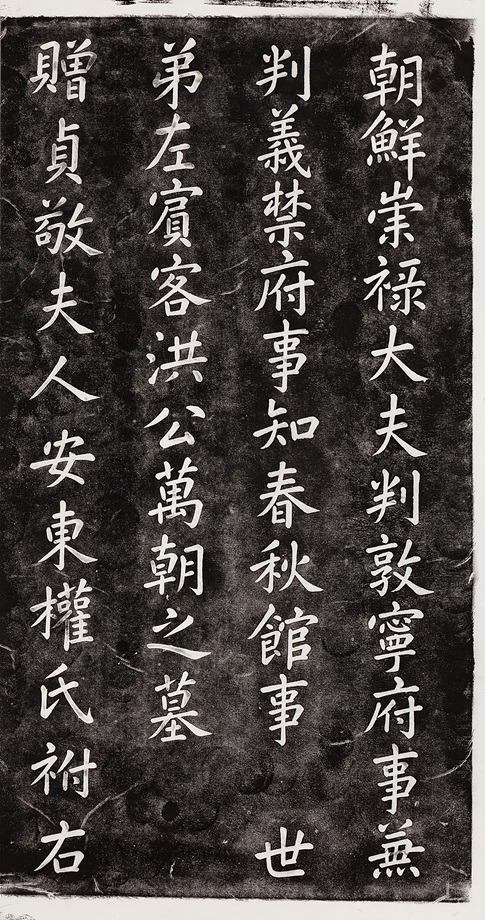 朝鮮崇祿大夫判敦寧府事兼
判義禁府事知春秋館事 世
弟左賓客洪公萬朝之墓
贈貞敬夫人安東權氏祔右